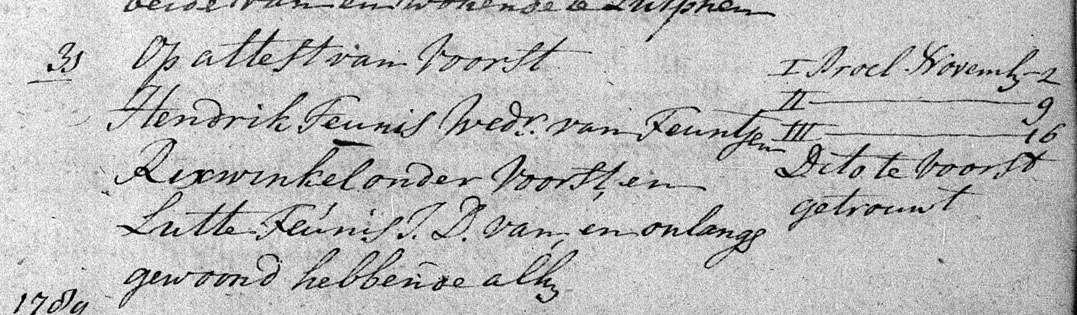 beide van en wonende te Zutphen
31 Op attest van Voorst
Hendrik Teunis Wedr. van Teuntjen
Rexwinkel onder Voorst, en
Lutte Teunis J. D. van, en onlangs
gewoond hebbende alhr
I Procl. Novembr 2
II 9
III 16
Dito te Voorst
getrouwt
1789